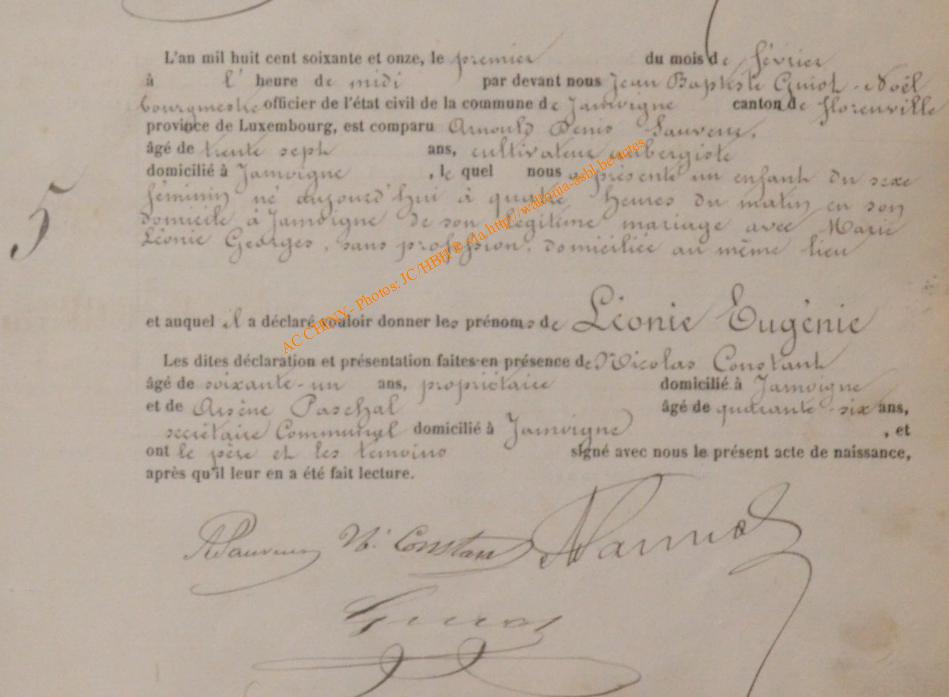 L'an mil huit cent soixante et onze, le premier du mois de février
à l' heure de midi par devant nous Jean Baptiste Guiot-Noël
bourgmestre officier de l'état civil de la commune de Jamoigne canton de Florenville
province de Luxembourg, est comparu Arnould Denis Sauveur,
âgé de trente sept ans, cultivateur aubergiste
domicilié à Jamoigne, le quel nous a présenté un enfant du sexe
5
féminin né aujourd'hui à quatre heures du matin en son
domicile à Jamoigne de son légitime mariage avec Marie
Léonie Georges, sans profession, domiciliée au même lieu
et auquel il a déclaré vouloir donner les prénoms de Léonie Eugénie
AC CHINY - Photos: JC/HBH © via http://watonia-asbl.be/actes
Les dites déclaration et présentation faites en présence de Nicolas Constant
âgé de soixante-un ans, propriétaire domicilié à Jamoigne
et de Arsène Paschal âgé de quarante-six ans,
secrétaire Communal domicilié à Jamoigne, et
ont le père et les témoins signé avec nous le présent acte de naissance,
après qu'il leur en a été fait lecture.
ASauveur N. Constant